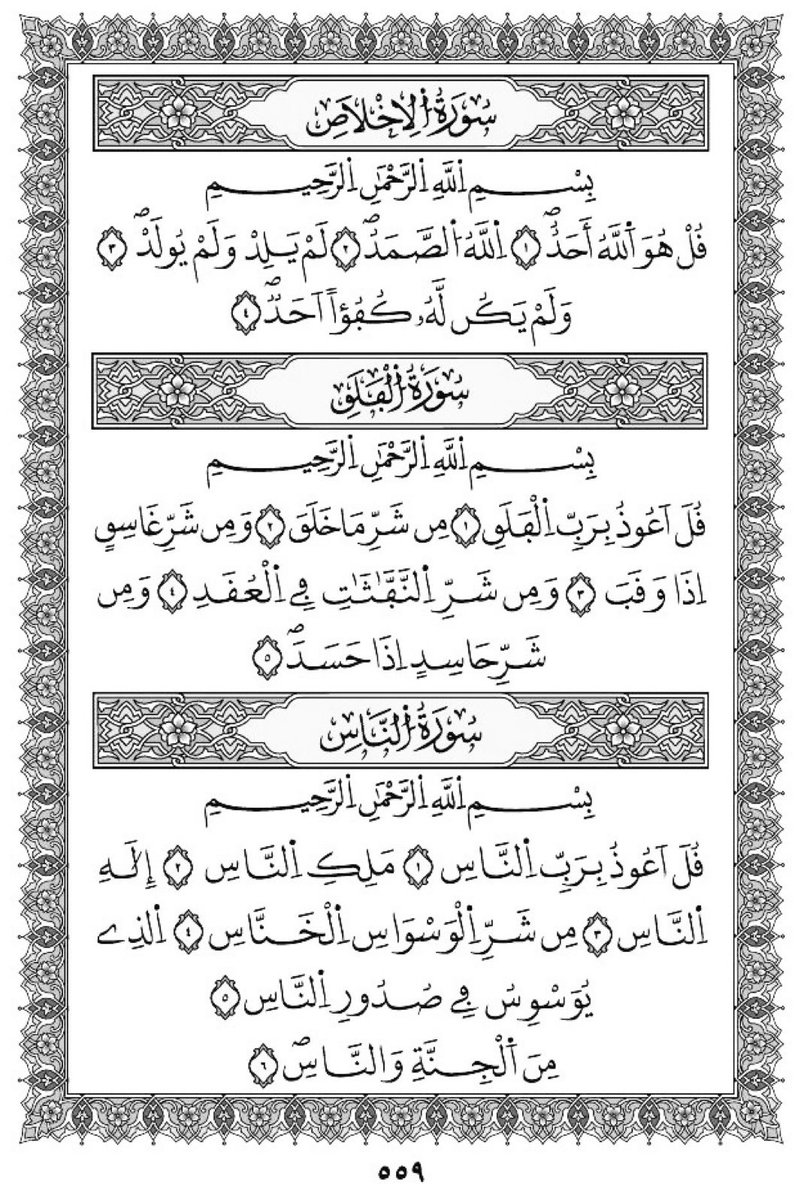 سُورَةُ اُلِاخْلَاصِ
بِسْمِ اِللَّهِ اِلرَّحْمَٰنِ اِلرَّحِيمِ
قُلْ هُوَ اَللَّهُ أَحَدٌۖ ١ اِللَّهُ اُلصَّمَدُۖ ٢ لَمْ يَلِدْ وَلَمْ يُولَدْۖ ٣
وَلَمْ يَكُن لَّهُۥ كُفُؤاً اَحَدٌۖ ٤
سُورَةُ اُلْفَلَقِ
بِسْمِ اِللَّهِ اِلرَّحْمَٰنِ اِلرَّحِيمِ
قُلَ اَعُوذُ بِرَبِّ اِلْفَلَقِ ١ مِن شَرِّ مَا خَلَقَ ٢ وَمِن شَرِّ غَاسِقٍ
اِذَا وَقَبَ ٣ وَمِن شَرِّ اِلنَّفَّٰثَٰتِ فِے اِلْعُقَدِ ٤ وَمِن
شَرِّ حَاسِدٍ اِذَا حَسَدَۖ ٥
سُورَةُ اُلنَّاسِ
بِسْمِ اِللَّهِ اِلرَّحْمَٰنِ اِلرَّحِيمِ
قُلَ اَعُوذُ بِرَبِّ اِلنَّاسِ ١ مَلِكِ اِلنَّاسِ ٢ إِلَٰهِ
اِلنَّاسِ ٣ مِن شَرِّ اِلْوَسْوَاسِ اِلْخَنَّاسِ ٤ اِلذِے
يُوَسْوِسُ فِے صُدُورِ اِلنَّاسِ ٥
مِنَ اَلْجِنَّةِ وَالنَّاسِۖ ٦
٥٥٩